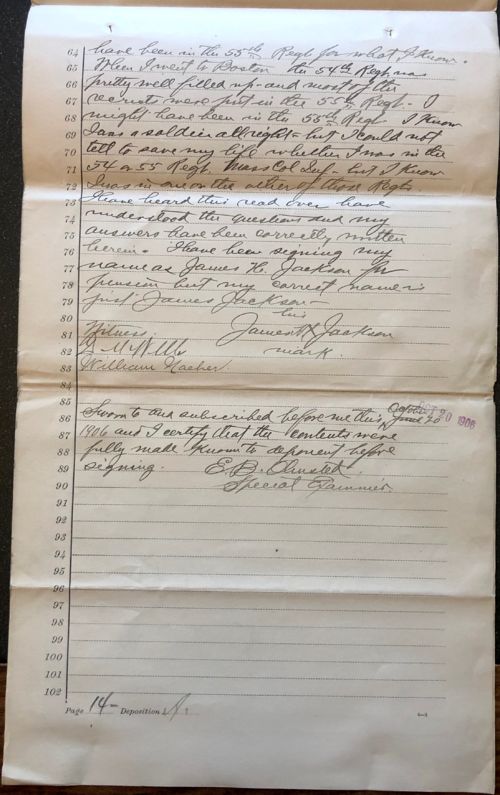 64 have been in the 55th Regt for what I know.
65 When I went to Boston the 54th Regt was
66 pretty well filled up - and most of the
67 recruits were put in the 55th Regt - I
68 might have been in the 55th Regt I know
69 I was a soldier allright - but I could not
70 tell to save my life whether I was in the
71 54 or 55 Regt Mass Col Inf - but I know
72 I was in one or the other of those Regts
73 I have heard this read over have
74 understood the questions and my
75 answers have been correctly written
76 herein. I have been signing my
77 name as James H. Jackson for
78 pension but my correct name is
79 just James Jackson -
80 his
81 Witness. James X Jackson
82 mark.
83 William
84
85
86 Sworn to and subscribed before me this October 20
OCT 20 1906
87 1906 and I certify that the contents were
88 fully made known to deponent before
89 signing. E. B. Olmsted
90 Special Examiner.
91
92
93
94
95
96
97
98
99
100
101
102
Page 14- Deposition A